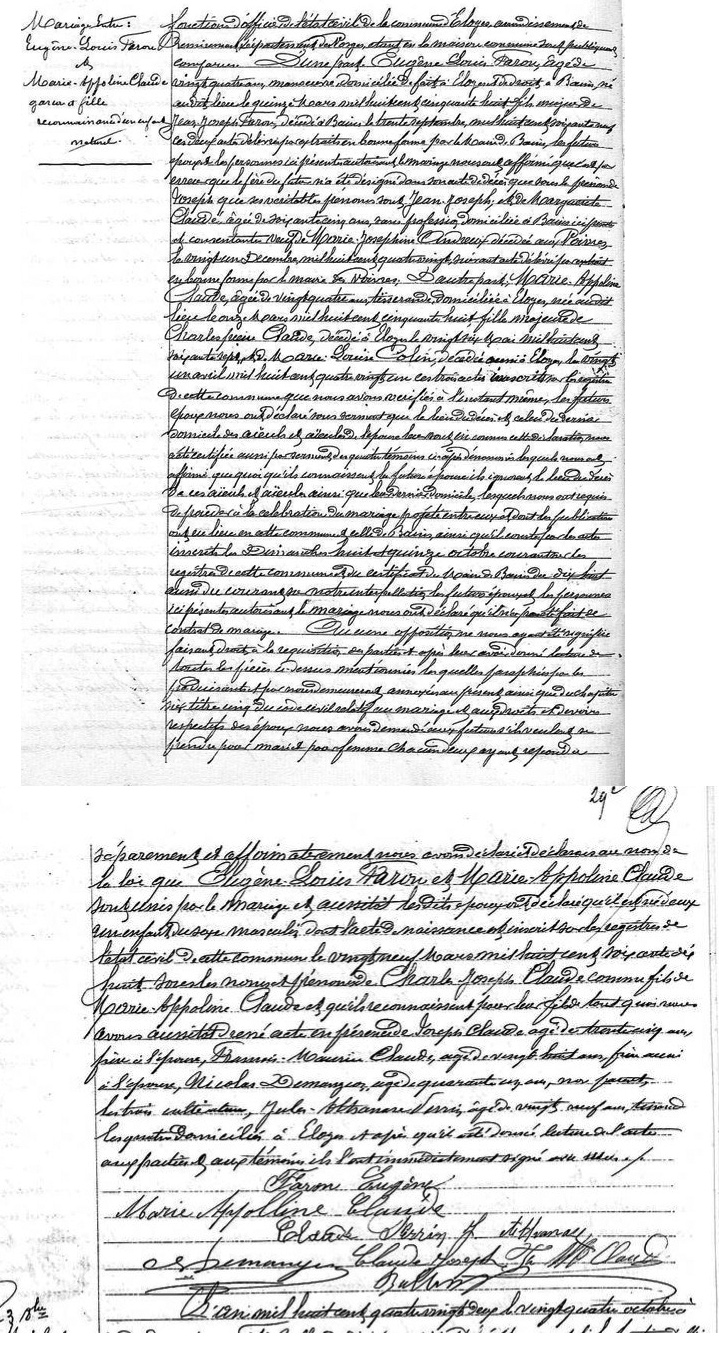 Mariage Entre :
Eugène-Louis Faron
&
Marie-Appoline Claude
garçon & fille
reconnaissance d'un enfant
naturel.
fonctions d'officier de l'état civil de la commune d'Eloyes, arrondissement de
Remiremont, département des Vosges, étant en la maison commune sont publiquement
comparus D'une part, Eugène Louis Faron, âgé de
vingt quatre ans, manœuvre domicilié de fait à Eloyes et de droit à Bains, né
audit lieu le quinze Mars mil huit cent cinquante huit fils majeur de
Jean Joseph Faron, décédé à Bains le trente septembre, mil huit cent soixante neuf
ces deux actes délivrés par extraits en bonne forme par le Maire de Bains, les futurs
époux et les personnes ici présentes autorisant le mariage nous ont affirmé que c'est par
erreur que le père du futur n'a été désigné dans son acte de décès que sous le prénom de
Joseph que ses véritables prénoms sont, Jean Joseph; et de Marguerite
Claude, âgée de soixante cinq ans, sans profession, domiciliée à Bains ici présente
et consentante veuf de Marie-Josephine décédée aux Voivres
le vingt un Décembre, mil huit cent quatre vingt, suivant acte délivré par extrait
en bonne forme par le maire des Voivres, D'autre part, Marie-Appoline
Claude, âgée de vingt quatre ans, tisserande, domiciliée à Eloyes, née audit
lieu le onze Mars mil huit cent cinquante huit fille majeure de
Charles Claude, décédé à Eloyes le vingt six Mai mil huit cent
soixante sept, et de Marie-Louise Colin, décédée aussi à Eloyes le vingt
un avril mil huit cent quatre vingt un ces trois actes inscrits sur les registres
de cette commune que nous avons vérifiés à l'instant même, les futurs
époux nous ont déclaré sous serment que le lieu du décès et celui du dernier
domicile des aïeuls et aïeules de l'épouse leur sont inconnus cette déclaration nous
a été certifiée aussi par serment des quatre témoins ci-après dénommés lesquels nous ont
affirmé que quoi qu'ils connaissent la future épouse ils ignorent le lieu du décès
de ces aïeuls et aïeules ainsi que leur dernier domicile, lesquels nous ont requis
de procéder à la célébration du mariage projeté entre eux et dont les publications
ont eu lieu en cette commune et celle de Bains, ainsi qu'il conste par les actes
inscrits les Dimanches huit et quinze octobre courant sur les
registres de cette commune et du certificat du Maire de Bains du dix huit
aussi du courant, sur notre interpellation, les futurs époux et les personnes
ici présentes autorisant le mariage nous ont déclaré qu'il n'a pas été fait de
contrat de mariage. Aucune opposition ne nous ayant été signifiée
faisant droit à la réquisition des parties et après leur avoir donné lecture de
toutes les pièces ci-dessus mentionnées lesquelles paraphées par les
produisants et par nous demeurent annexées au présent, ainsi que du chapitre
six titre cinq du code civil relatif au mariage et aux droits et devoirs
respectifs des époux nous avons demandé aux futurs s'ils veulent se
prendre pour mari et pour femme chacun d'eux ayant répondu
29e
séparément et affirmativement nous avons déclaré et déclarons au nom de
la loi que Eugène-Louis Faron et Marie-Appoline Claude
sont unis par le mariage et aussitôt lesdits époux ont déclaré qu'il est né d'eux
un enfant du sexe masculin dont l'acte de naissance est inscrit sur les registres de
l'état civil de cette commune le vingt neuf Mars mil huit cent soixante dix
huit sous les noms et prénoms de Charle-Joseph Claude comme fils de
Marie-Appoline Claude et qu'ils reconnaissent pour leur fils de tout quoi nous
avons aussitôt dressé acte en présence de Joseph Claude âgé de trente cinq ans,
frère à l'épouse, François-Maurice Claude, âgé de vingt huit ans, frère aussi
à l'épouse, Nicolas Demangeon, âgé de quarante un ans, non parent,
les trois cultivateurs, Jules-Athanase Perrin, âgé de vingt neuf ans, tisserand
les quatre domiciliés à Eloyes et après qu'il a été donné lecture de l'acte
aux parties et aux témoins ils l'ont immédiatement signé avec nous ./.
Faron Eugène
Marie Appolline Claude
Claude Perrin J. Athanase
Demangeon Claude Joseph Fs Mce Claude
L'an mil huit cent quatre vingt deux le vingt quatre octobre à